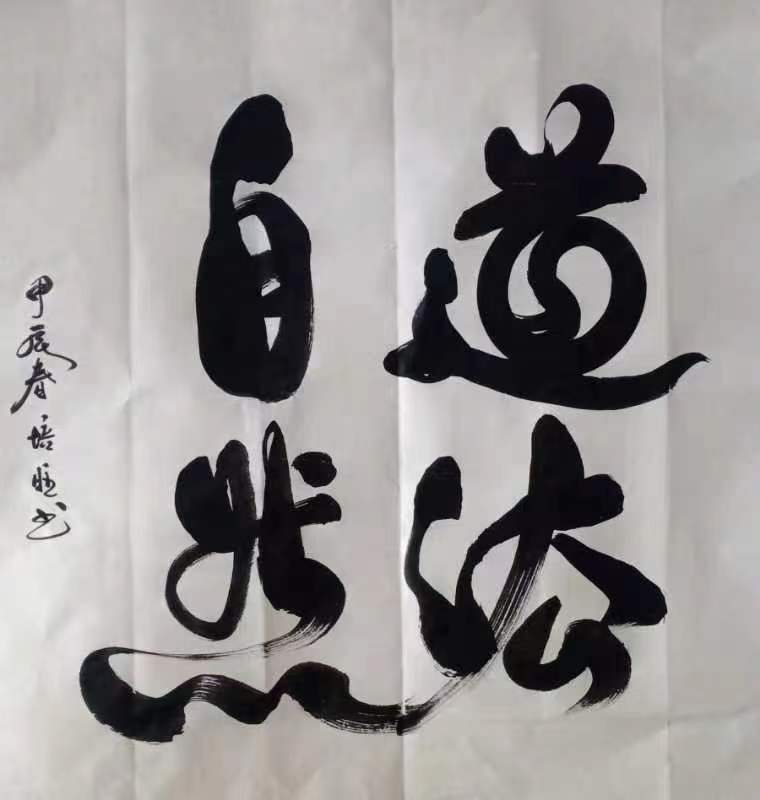 道法
自然
甲辰春培旺书